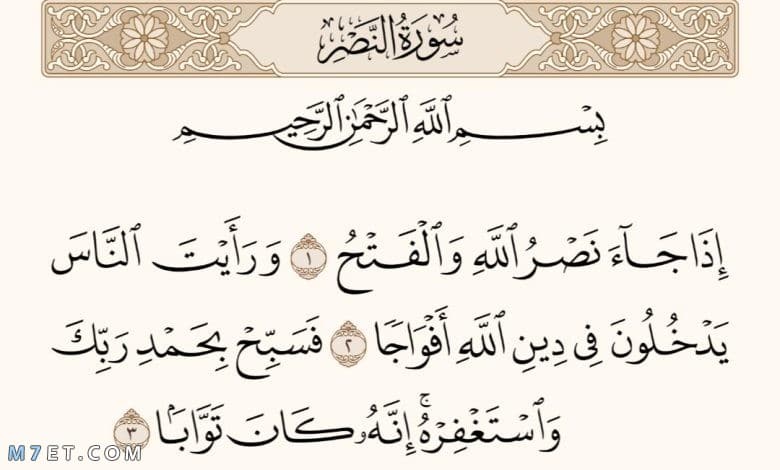 سُورَةُ النَّصْرِ
بِسْمِ ٱللَّهِ ٱلرَّحْمَٰنِ ٱلرَّحِيمِ
إِذَا جَآءَ نَصْرُ ٱللَّهِ وَٱلْفَتْحُ ١ وَرَأَيْتَ ٱلنَّاسَ
يَدْخُلُونَ فِى دِينِ ٱللَّهِ أَفْوَاجًا ٢ فَسَبِّحْ بِحَمْدِ رَبِّكَ
وَٱسْتَغْفِرْهُ ۚ إِنَّهُۥ كَانَ تَوَّابًۢا ٣
M7ET.COM